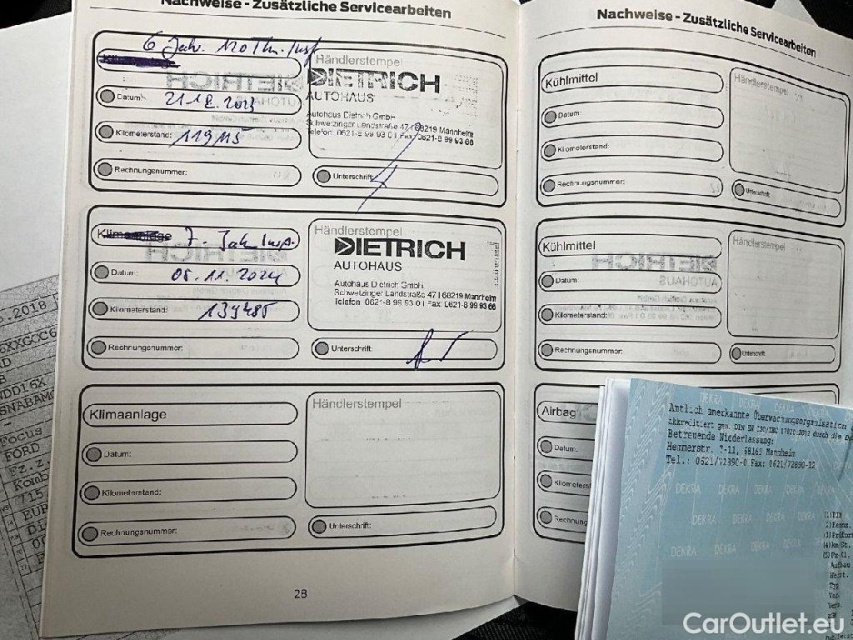 Nachweise - Zusätzliche Servicearbeiten
6 Jahr. 120 Th. Insp
Datum:
21.12.
Kilometerstand:
119115
Rechnungsnummer:
Händlerstempel
DIETRICH
AUTOHAUS
Autohaus Dietrich GmbH
Schwetzinger Landstraße 47 | 68219 Mannheim
Telefon 0621-8 99 93 0 | Fax 0621-8 99 93 66
Unterschrift:
Klimaanlage 7. Jah Insp.
Datum:
05.11.2024
Kilometerstand:
139485
Rechnungsnummer:
Händlerstempel
DIETRICH
AUTOHAUS
Autohaus Dietrich GmbH
Schwetzinger Landstraße 47 | 68219 Mannheim
Telefon 0621-8 99 93 0 | Fax 0621-8 99 93 66
Unterschrift:
Klimaanlage
Datum:
Kilometerstand:
Rechnungsnummer:
Händlerstempel
Unterschrift:
28
Nachweise - Zusätzliche Servicearbeiten
Kühlmittel
Datum:
Kilometerstand:
Rechnungsnummer:
Händlerstempel
Unterschrift:
Kühlmittel
Datum:
Kilometerstand:
Rechnungsnummer:
Händlerstempel
Unterschrift:
Airbag
Datum:
Kilometerst
Rechnung
.2018
Focus
FORD
715
Amtlich anerkannte Überwachungsorganisation
akkreditiert gem. DIN EN ISO/IEC 17020:2012 durch die
Betreuende Niederlassung:
Hemmerstr. 7-11, 68163 Mannheim
Tel.: 0621/72890-0 Fax: 0621/72890-32
DEKRA
CarOutlet.eu